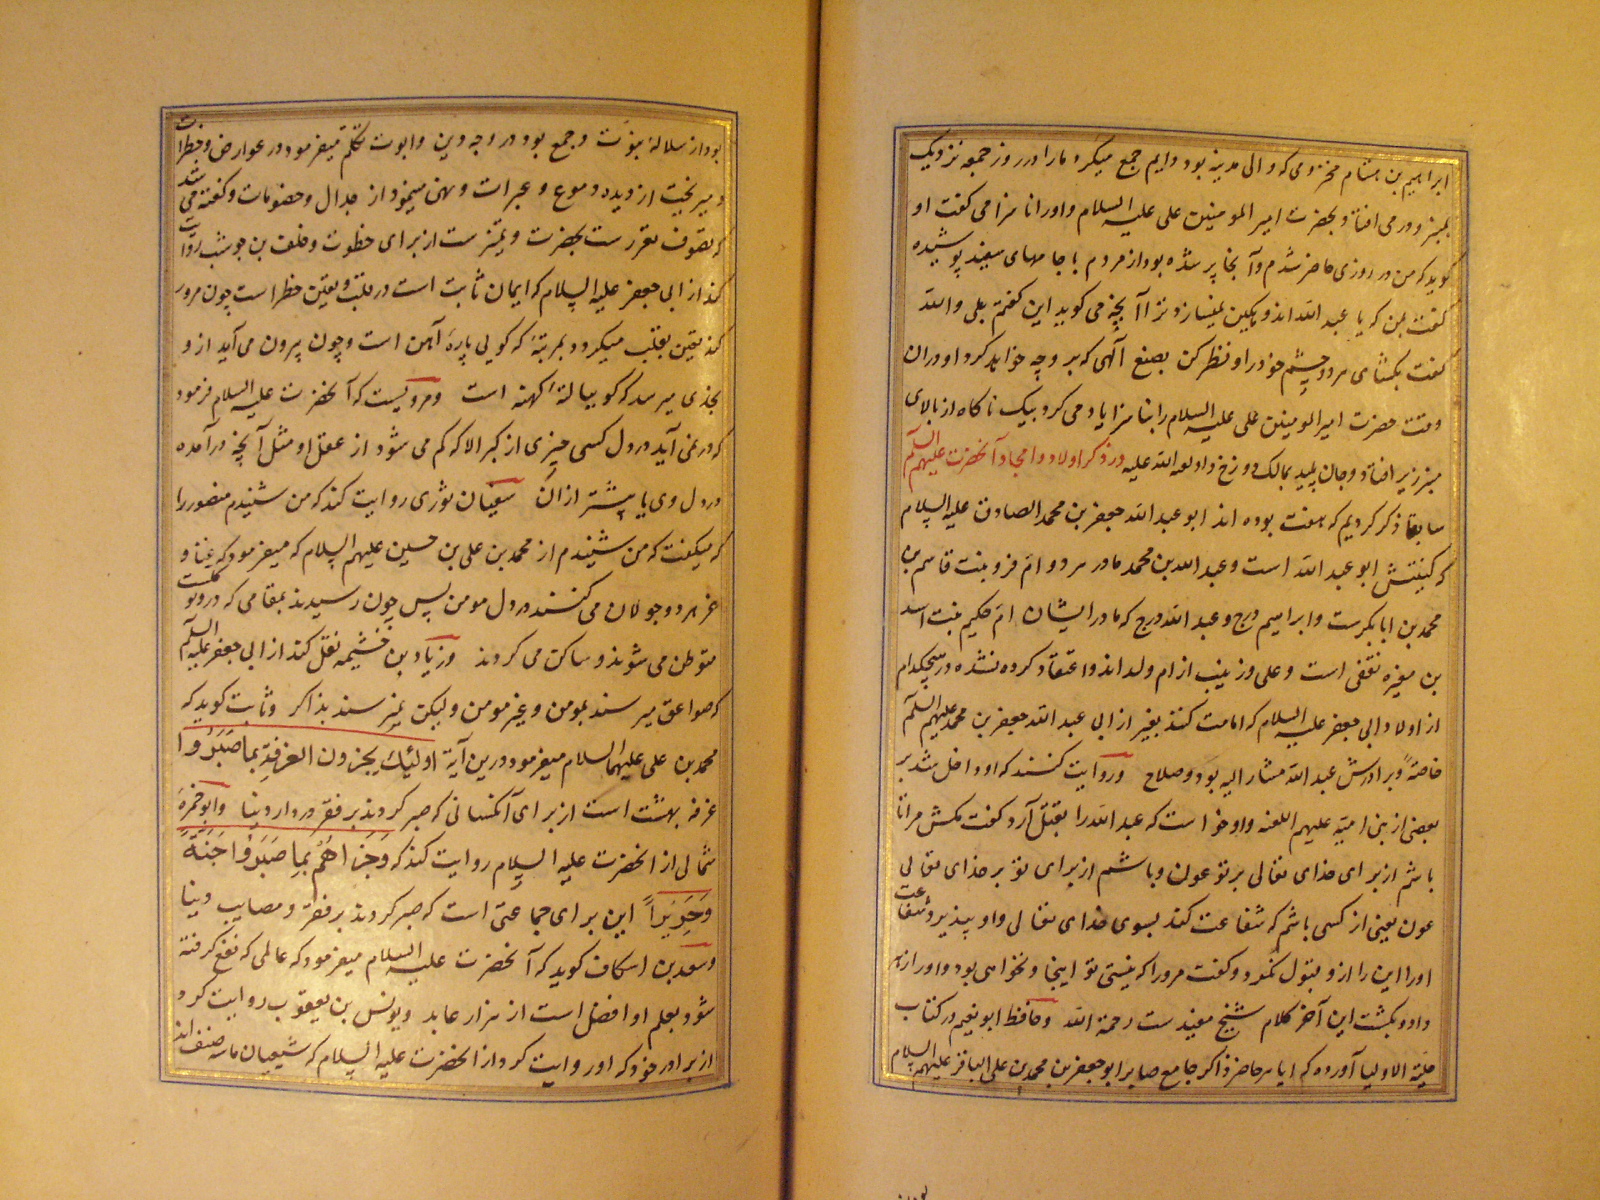 ابراهیم بن هشام مخزومی که والی مدینه بود دایم جمع میکرد ما را در روز جمعه نزدیک
بمنبر و در می افتاد بحضرت امیر المومنین علی علیه السلام و او را ناسزا می گفت او
گوید که من در روزی حاضر شدم و آنجا پر شده بود از مردم با جامهای سفید پوشیده
گفت بمن که یا عبد الله اندوهگین نمیسازد ترا آنچه می گوید این گفتم بلی والله
گفت بگشای هر دو چشم خود را و نظر کن بصنع آلهی که بر وچه خواهد کرد او در آن
وقت حضرت امیر المومنین علی علیه السلام را بناسزا یاد می کرد بیک ناگاه از بالای
منبر زیر افتاد و جان پلید بمالک دوزخ داد لعنه الله علیه در ذکر اولاد و امجاد آنحضرت علیهم السلم
سابقا ذکر کردیم که هفت بوده اند ابو عبد الله جعفر بن محمد الصادق علیه السلام
که کنیتش ابو عبد الله است و عبد الله بن محمد مادر هر دو ام فروه بنت قاسم بن
محمد بن ابابکرست و ابراهیم درج و عبد الله درج که مادر ایشان ام حکیم بنت اسد
بن مغیره ثقفی است و علی و زینب از ام ولد اند و اعتقاد کرده نشده در هیچکدام
از اولاد ابی جعفر علیه السلام که امامت کنند بغیر از ابی عبد الله جعفر بن محمد علیهم السلم
خاصة و برادرش عبد الله مشار الیه بود و صلاح و روایت کنند که او داخل شد بر
بعضی از بنی امیه علیهم اللعنه و او خواست که عبد الله را بقتل آرد گفت مکش مرا تا
باشم از برای خدای تعالی بر تو عون و باشم از برای تو بر خدای تعالی
عون یعنی از کسی باشم که شفاعت کند بسوی خدای تعالی و او بپذیرد شفاعت
او را این را ازو قبول نکرد و گفت مرو را که نیستی تو اینجا و نخواهی بود و او را زهر
داد و بکشت این آخر کلام شیخ مفیدست رحمة الله و حافظ ابو نعیم در کتاب
حلیة الاولیا آورده که ایاس حاضر ذاکر جامع صابر ابو جعفر بن محمد بن علی الباقر علیهم السلام
بود از سلاله نبوت و جمع بود در وجه دین و ابوت تکلم میفرمود در عوارض و خطرات
و میریخت از دیده دموع و عبرات و نهی مینمود از جدال و خصومات و گفته می شد
که تصوف تعزرست بحضرت و تمیزست از برای خطوت و خلف بن حوشب روایت
کند از ابی جعفر علیه السلام که ایمان ثابت است در قلب و یقین خطراست چون مرور
کند یقین بقلب میگردد بمرتبۀ که گویی پارۀ آهن است و چون بیرون می آید ازو
بحدی میرسد که گوییا لتۀ کهنه است و مرویست که آنحضرت علیه السلام فرمود
که در نمی آید در دل کسی چیزی از کبر الا که کم می شود از عقل او مثل آنچه در آمده
در دل وی یا پیشتر از آن سفیان ثوری روایت کند که من شنیدم منصور را
که میگفت که من شنیدم از محمد بن علی بن حسین علیهم السلام که میفرمود که غنا و
عز هر دو جولان می کنند در دل مومن پس چون رسیدند بمقامی که درو توکلست
متوطن می شوند و ساکن می گردند و زیاد بن خثیمه نقل کند از ابی جعفر علیه السلم
که صواعق میرسند بمومن و غیر مومن و لیکن نمیرسند بذاکر و ثابت گوید که
محمد بن علی علیهما السلام میفرمود درین آیة اولئك یجزون الغرفة بما صبروا
غرفه بهشت است از برای آنکسانی که صبر کردند بر فقر در دار دنیا و ابو حمزه
ثمالی از آنحضرت علیه السلام روایت کند که وجزاهم بما صبروا جنة
وحریراً این برای جماعتی است که صبر کردند بر فقر و مصایب دنیا
و سعد بن اسکاف گوید که آنحضرت علیه السلام میفرمود که عالمی که نفع گرفته
شود بعلم او افضل است از هزار عابد و یونس بن یعقوب روایت کرد
از برادر خود که او روایت کرد از آنحضرت علیه السلام که شیعیان ما سه صنف اند